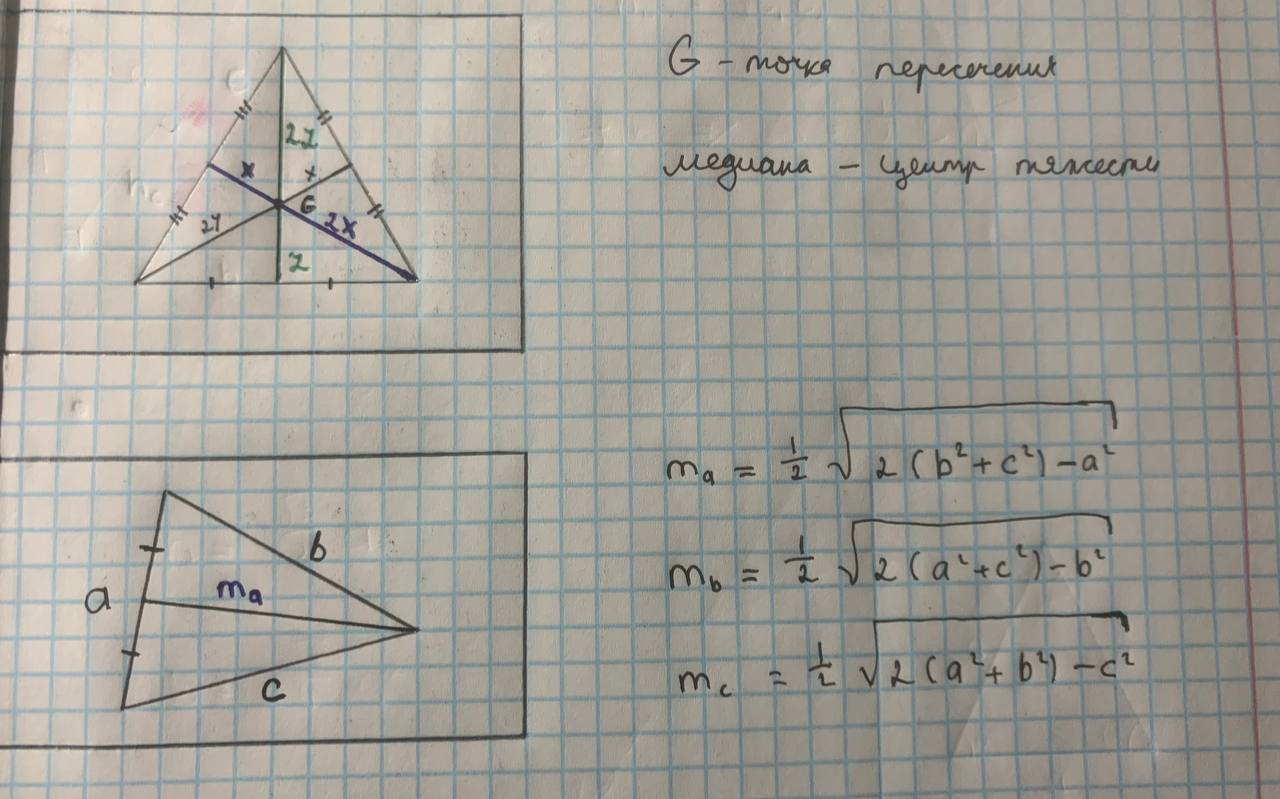 2z
x
x
G
2y
2x
z
G – точка пересечения
медиана – центр тяжести
a
b
mₐ
c
mₐ = 1/2 √(2(b²+c²)–a²)
m_b = 1/2 √(2(a²+c²)–b²)
m_c = 1/2 √(2(a²+b²)–c²)